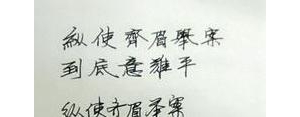 縱使齊眉舉案
到底意難平
纵使齐眉举案